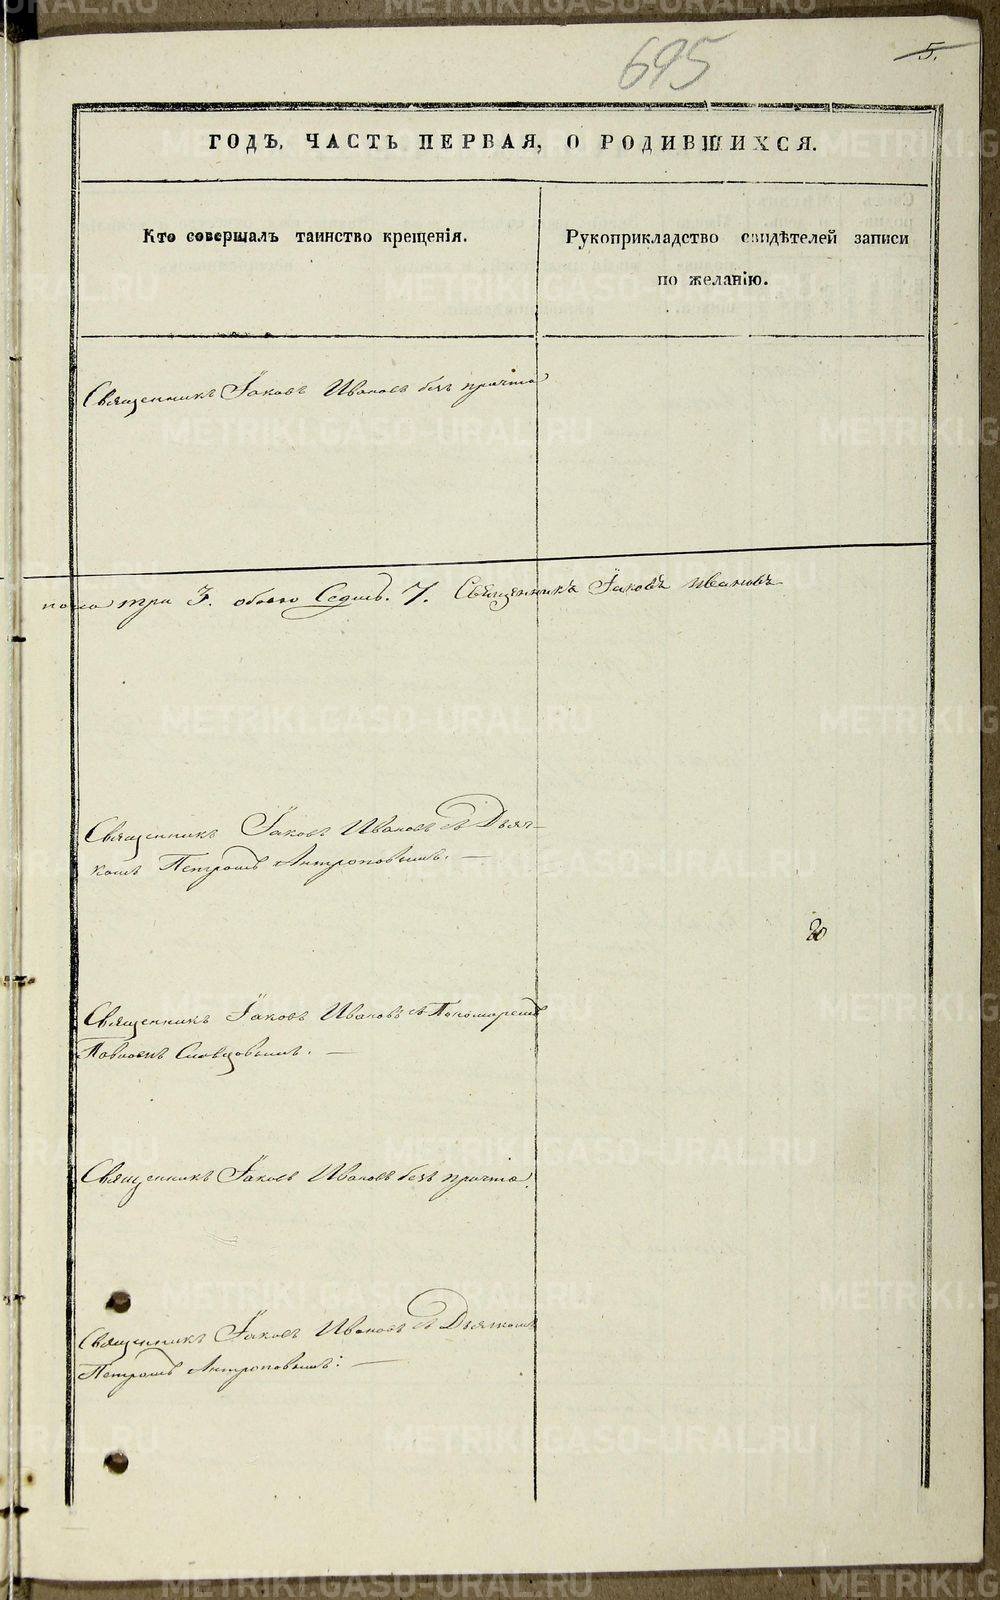 695
5.
ГОДЪ, ЧАСТЬ ПЕРВАЯ, О РОДИВШИХСЯ.
Кто совершалъ таинство крещенія.
Рукоприкладство свидѣтелей записи
по желанію.
Священникъ Іаковъ Ивановъ безъ причта
пола три 3. обоего Седмь. 7. Священникъ Іаковъ Ивановъ
Священникъ Іаковъ Ивановъ съ Дьяч-
комъ Петромъ Антроповымъ. —
Священникъ Іаковъ Ивановъ съ Пономаремъ
Павломъ Словцовымъ. —
Священникъ Іаковъ Ивановъ безъ причта.
Священникъ Іаковъ Ивановъ съ Дьячкомъ
Петромъ Антроповымъ: —
METRIKI.GASO-URAL.RU